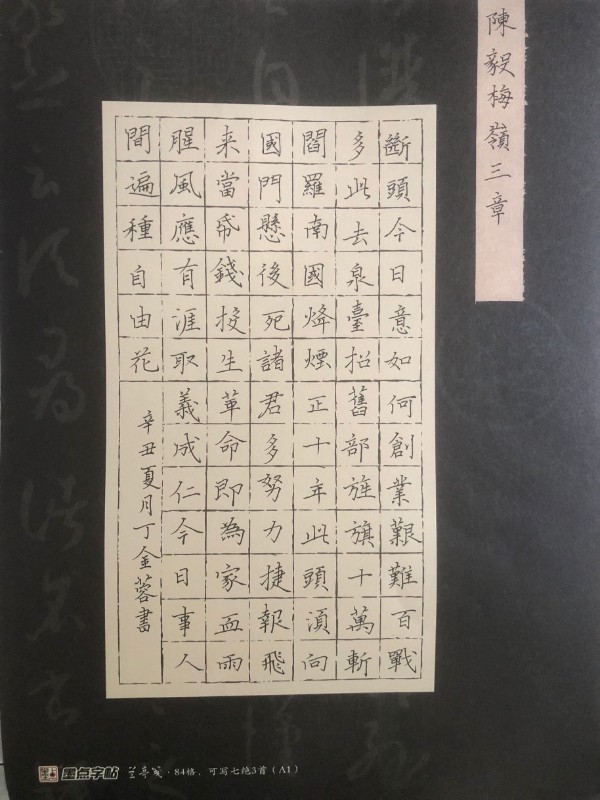 陳毅梅嶺三章
斷頭今日意如何創業艱難百戰
多此去泉臺招舊部旌旗十萬斬
閻羅南國烽煙正十年此頭須向
國門懸後死諸君多努力捷報飛
来當帋錢投生革命即為家血雨
腥風應有涯取義成仁今日事人
間遍種自由花
辛丑夏月丁金蓉書
墨点字帖 ·84格，可写七绝3首（A1）